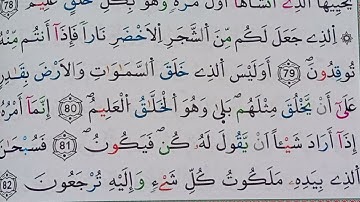 يُحْيِيهَا ٱلَّذِىٓ أَنشَأَهَآ أَوَّلَ مَرَّةٍ وَهُوَ بِكُلِّ خَلْقٍ عَلِيمٌ 78
ٱلَّذِى جَعَلَ لَكُم مِّنَ ٱلشَّجَرِ ٱلْأَخْضَرِ نَارًا فَإِذَآ أَنتُم مِّنْهُ
تُوقِدُونَ 79 أَوَلَيْسَ ٱلَّذِى خَلَقَ ٱلسَّمَٰوَٰتِ وَٱلْأَرْضَ بِقَٰدِرٍ
عَلَىٰٓ أَن يَخْلُقَ مِثْلَهُم بَلَىٰ وَهُوَ ٱلْخَلَّٰقُ ٱلْعَلِيمُ 80 إِنَّمَآ أَمْرُهُۥٓ
إِذَآ أَرَادَ شَيْـًٔا أَن يَقُولَ لَهُۥ كُن فَيَكُونُ 81 فَسُبْحَٰنَ
ٱلَّذِى بِيَدِهِۦ مَلَكُوتُ كُلِّ شَىْءٍ وَإِلَيْهِ تُرْجَعُونَ 82